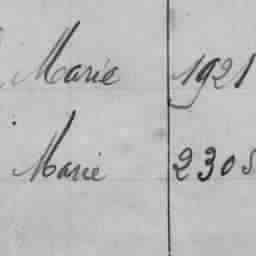 Marie 1921
Marie 2305